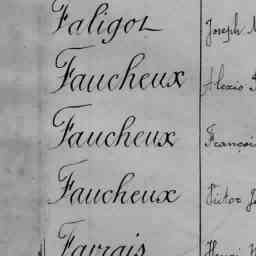 Faligot Joseph
Faucheux Alexis
Faucheux François
Faucheux Victor
Favrais Henri